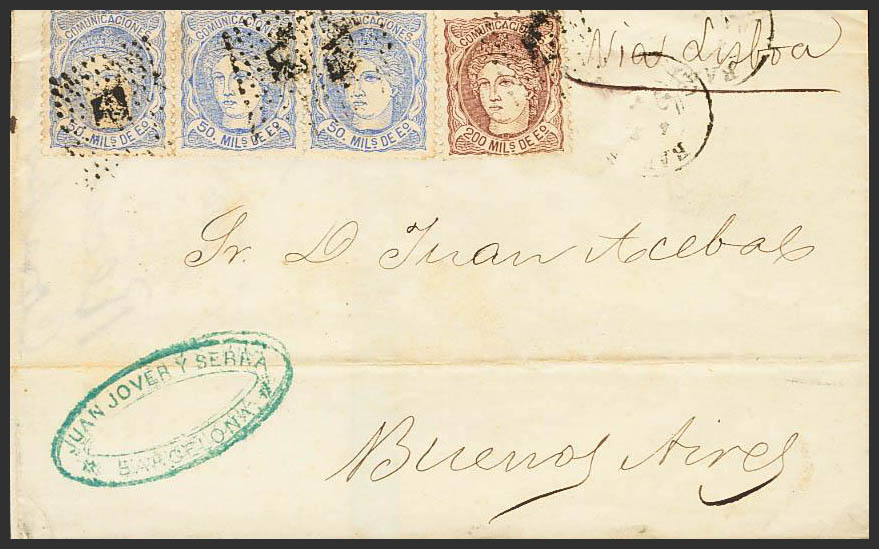 COMUNICACIONES COMUNICACIONES COMUNICACIONES COMUNICACIONES
50. MILS DE EO. 50. MILS DE EO. 50. MILS DE EO. 200 MILS DE EO.
Via Lisboa
Sr. D Juan Acebal
JUAN JOVER Y SERRA
BARCELONA
Buenos Aires